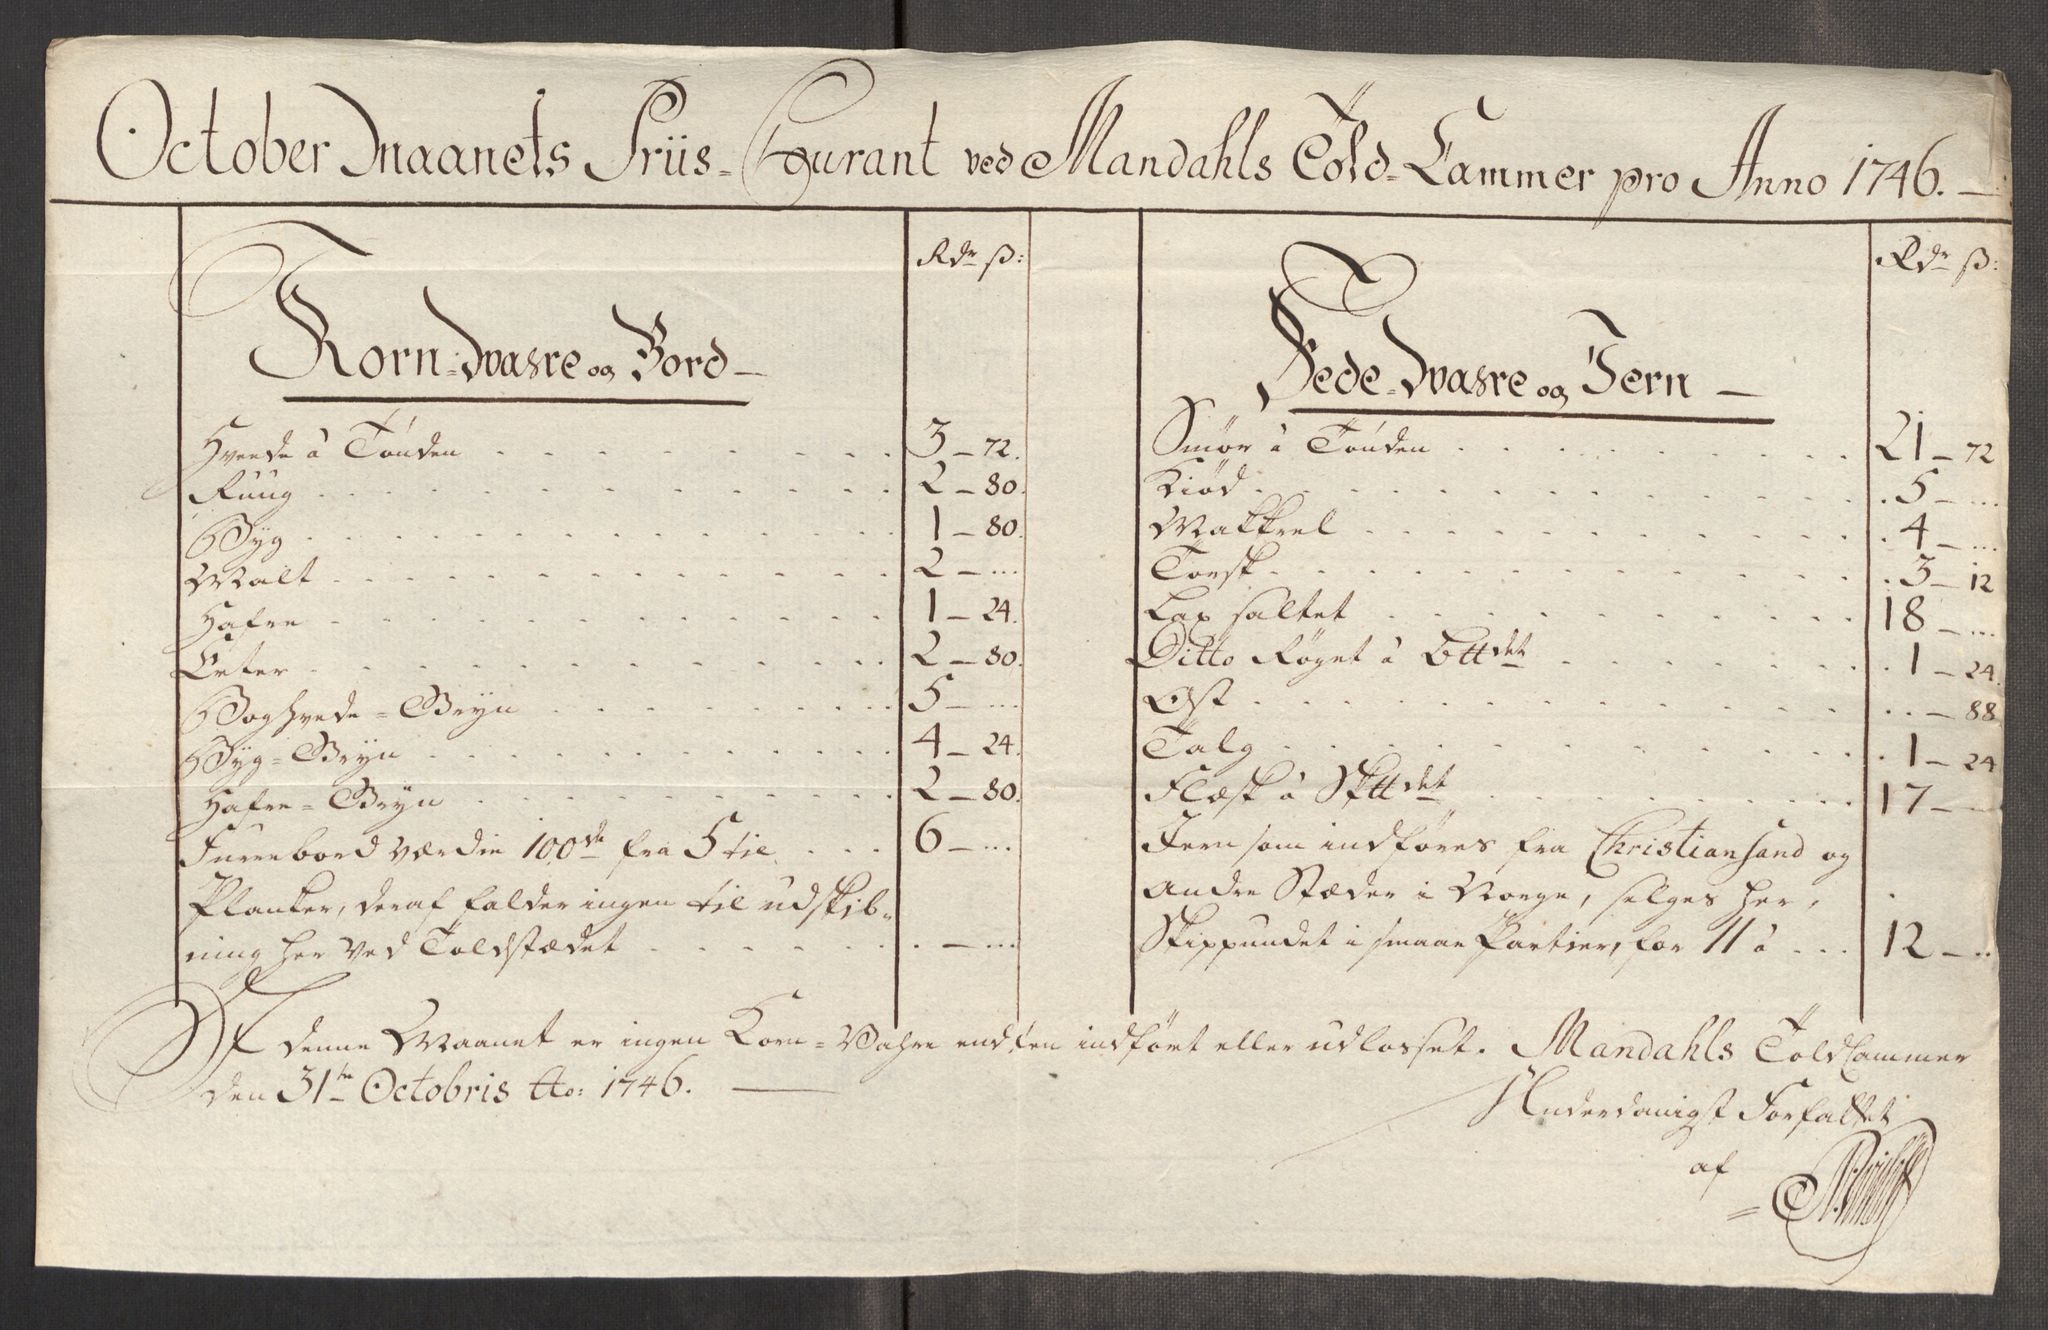 October Maanets Priis-Courant ved Mandahls Told-Cammer pro Anno 1746.
Rdr ß:
Korn-Waare og Bord
Hvede â Tønden 3 – 72.
Ruug 2 – 80.
Byg 1 – 80.
Malt 2 – ...
Hafre 1 – 24.
Erter 2 – 80.
Boghvede-Gryn 5 – ...
Byg-Gryn 4 – 24.
Hafre-Gryn 2 – 80.
Furrebord værdie 100de fra 5 til 6 – ...
Planker, deraf falder ingen til udskib-
ning her ved Toldstædet . – ...
Rdr ß:
Fede-Waare og Jern
Smør â Tønden 21 – 72
Kiød 5 – ...
Makkrel 4 – ...
Torsk 3 – 12
Lax saltet 18 – ...
Ditto Røget â Lttdet 1 – 24.
Ost .. – 88
Talg 1 – 24
Flæsk â Skttdet 17 – ...
Jern som indføres fra Christiansand og
andre Stæder i Norge, selges her,
Skippundet i smaae Partier, for 11 â 12 – ...
Af denne Maanet er ingen Korn-Vahre endten indført eller udlosset. Mandahls ToldCammer
den 31te Octobris Ao: 1746.
Underdanigst Forfattet
af